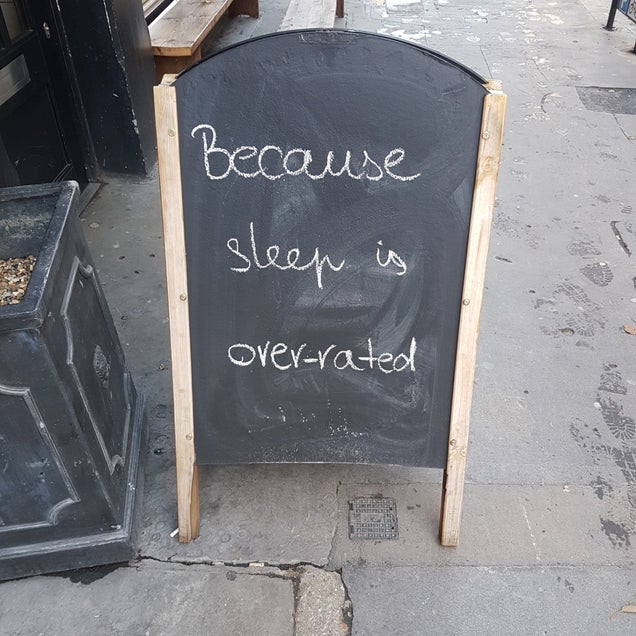 Because
sleep is
over-rated